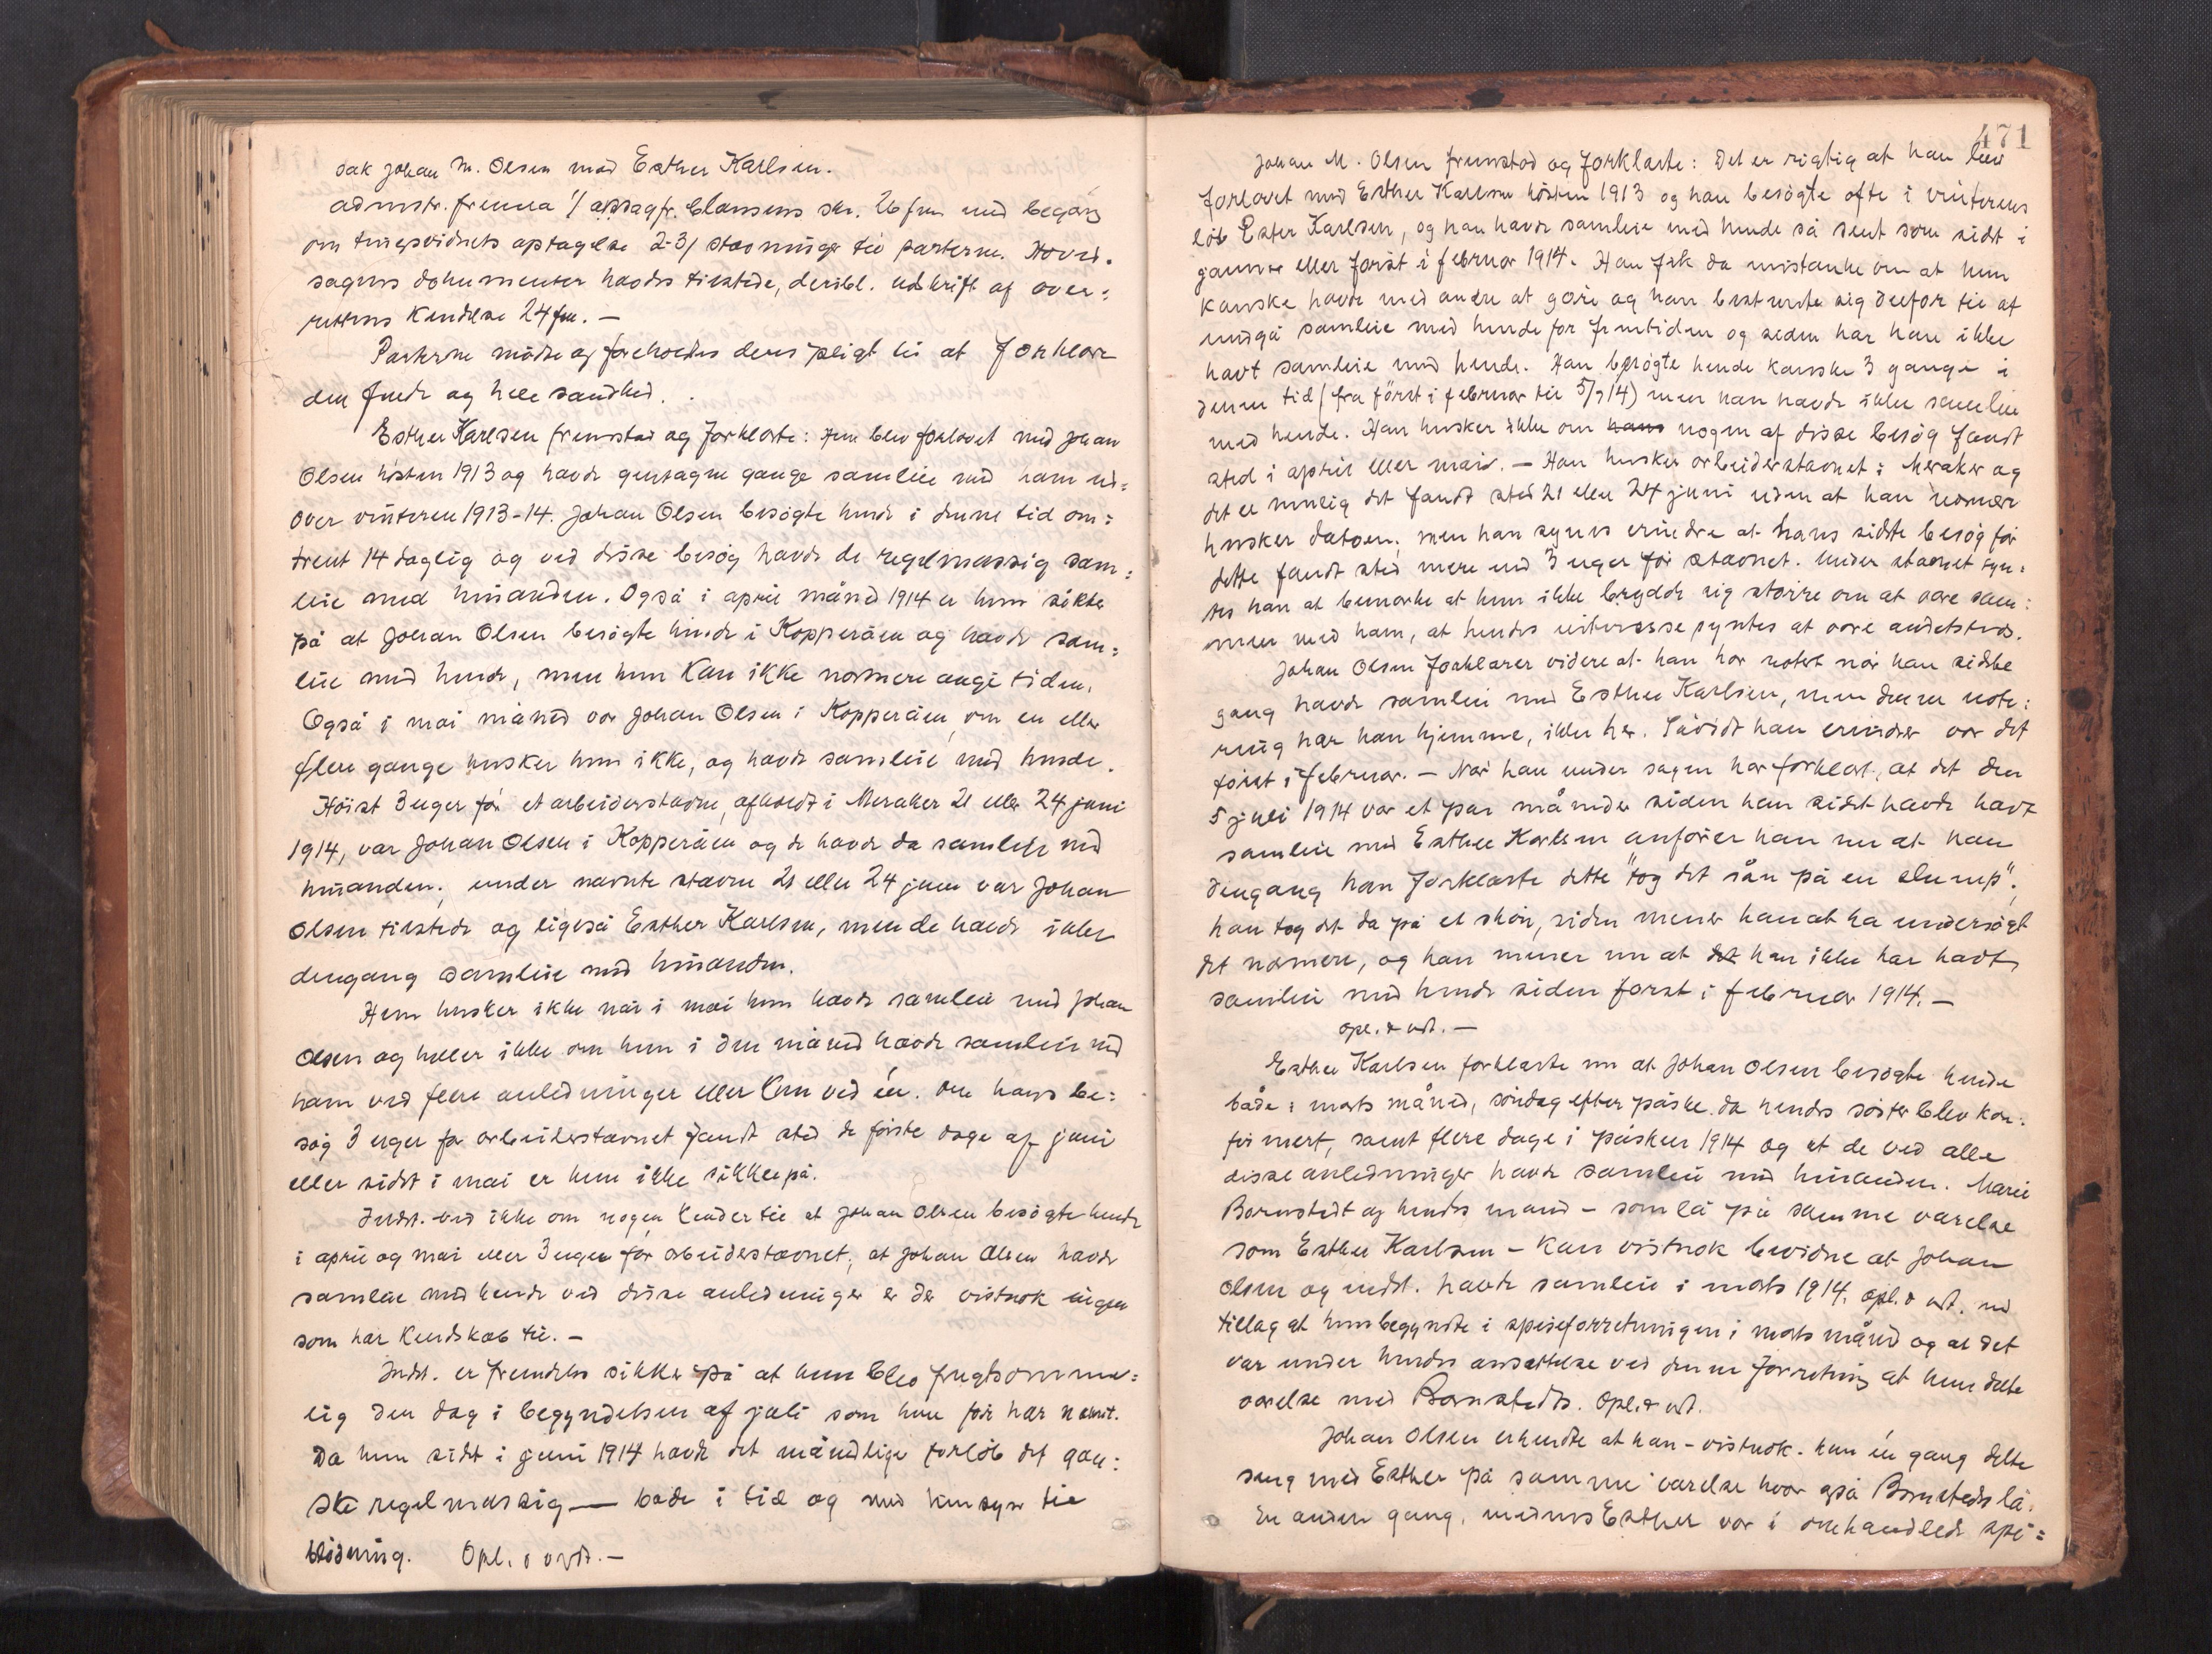 sak Johan M. Olsen mod Esther Karlsen.
adminstr. fremla 1/ oversagfr. Clausens skr. 26 jan med begæring
om tingsvidnets optagelse 2-3/ stævninger til parterne. Hoved-
sagens dokumenter havdes tilstede, deribl. udskrift af over-
rettens Kendelse 24 jan. —
Parterne mødte og foreholdtes deres pligt til at forklare
den fulde og hele sandhed.
Esther Karlsen fremstod og forklarte: Hun blev forlovet med Johan
Olsen høsten 1913 og havde gjentagne gange samleie med ham ud-
over vinteren 1913-14. Johan Olsen besøgte hende i denne tid om-
trent 14 daglig og ved disse besøg havde de regelmæssig sam-
leie med hinanden. Også i april måned 1914 er hun sikker
på at Johan Olsen besøgte hende i Kopperåen og havde sam-
leie med hende, men hun kan ikke nærmere angi tiden.
Også i mai måned var Johan Olsen i Kopperåen, om en eller
flere gange husker hun ikke, og havde samleie med hende.
Høist 3 uger før et arbeiderstævne, afholdt i Meraker 21 eller 24 juni
1914, var Johan Olsen i Kopperåen og de havde da samleie med
hinanden; under nævnte stævne 21 eller 24 juni var Johan
Olsen tilstede og ligeså Esther Karlsen, men de havde ikke
dengang samleie med hinanden.
Hun husker ikke når i mai hun havde samleie med Johan
Olsen og heller ikke om hun i den måned havde samleie med
ham ved flere anledninger eller kun ved én. Om hans be-
søg 3 uger før arbeiderstævnet fandt sted de første dage af juni
eller sidst i mai er hun ikke sikker på.
Indst. ved ikke om nogen kender til at Johan Olsen besøgte hende
i april og mai eller 3 uger før arbeiderstævnet; at Johan Olsen havde
samleie med hende ved disse anledninger er der vistnok ingen
som har Kendskab til. —
Indst. er fremdeles sikker på at hun blev frugtsomme-
lig den dag i begyndelsen af juli som hun før har nævnt.
Da hun sidst i juni 1914 havde det månedlige forløb det gan-
ske regelmæssig — både i tid og med hensyn til
blødning. Opl. o vedt. —
471
Johan M. Olsen fremstod og forklarte: Det er rigtig at han blev
forlovet med Esther Karlsen høsten 1913 og han besøgte ofte i vinterens
løb Ester Karlsen, og han havde samleie med hende så sent som sidst i
januar eller først i februar 1914. Han fik da mistanke om at hun
kanske havde med andre at gøre og han bestemte sig derfor til at
undgå samleie med hende for fremtiden og siden har han ikke
havt samleie med hende. Han besøgte hende kanske 3 gange i
denne tid (fra først i februar til 5/7 14) men han havde ikke samleie
med hende. Han husker ikke om hans nogen af disse besøg fandt
sted i april eller mai. — Han husker arbeiderstævnet i Meraker og
det er mulig det fandt sted 21 eller 24 juni uden at han nærmere
husker datoen; men han synes erindre at hans sidste besøg før
dette fandt sted mere end 3 uger før stævnet. Under stævnet syn-
tes han at bemærke at hun ikke brydde sig større om at være sam-
men med ham, at hendes interesse syntes at være andetsteds.
Johan Olsen forklarer videre at han har notert når han sidste
gang havde samleie med Esther Karlsen, men denne note-
ring har han hjemme, ikke her. Såvidt han erindrer var det
først i februar. — Når han under sagen har forklart, at det den
5 juli 1914 var et par måneder siden han sidst havde havt
samleie med Esther Karlsen anfører han nu at han
dengang han forklarte dette "tog det sån på en slump";
han tog det da på et skøn, siden mener han at ha undersøgt
det nærmere, og han mener nu at det han ikke har havt
samleie med hende siden først i februar 1914. —
opl. & vedt. —
Esther Karlsen forklarte nu at Johan Olsen besøgte hende
både i marts måned, søndag efter påske da hendes søster blev kon-
firmert, samt flere dage i påsken 1914 og at de ved alle
disse anledninger havde samleie med hinanden. Marie
Bornstedt og hendes mand – som lå på samme værelse
som Esther Karlsen – kan vistnok bevidne at Johan
Olsen og indst. havde samleie i marts 1914. opl. & vedt. med
tillæg at hun begyndte i spiseforretningen i marts måned og at det
var under hendes ansættelse ved denne forretning at hun delte
værelse med Bornstedts. Opl. & vedt.
Johan Olsen erkendte at han – vistnok – kun én gang delte
seng med Esther på samme værelse hvor også Bornstedts lå.
En anden gang, medens Esther var i omhandlede spi-